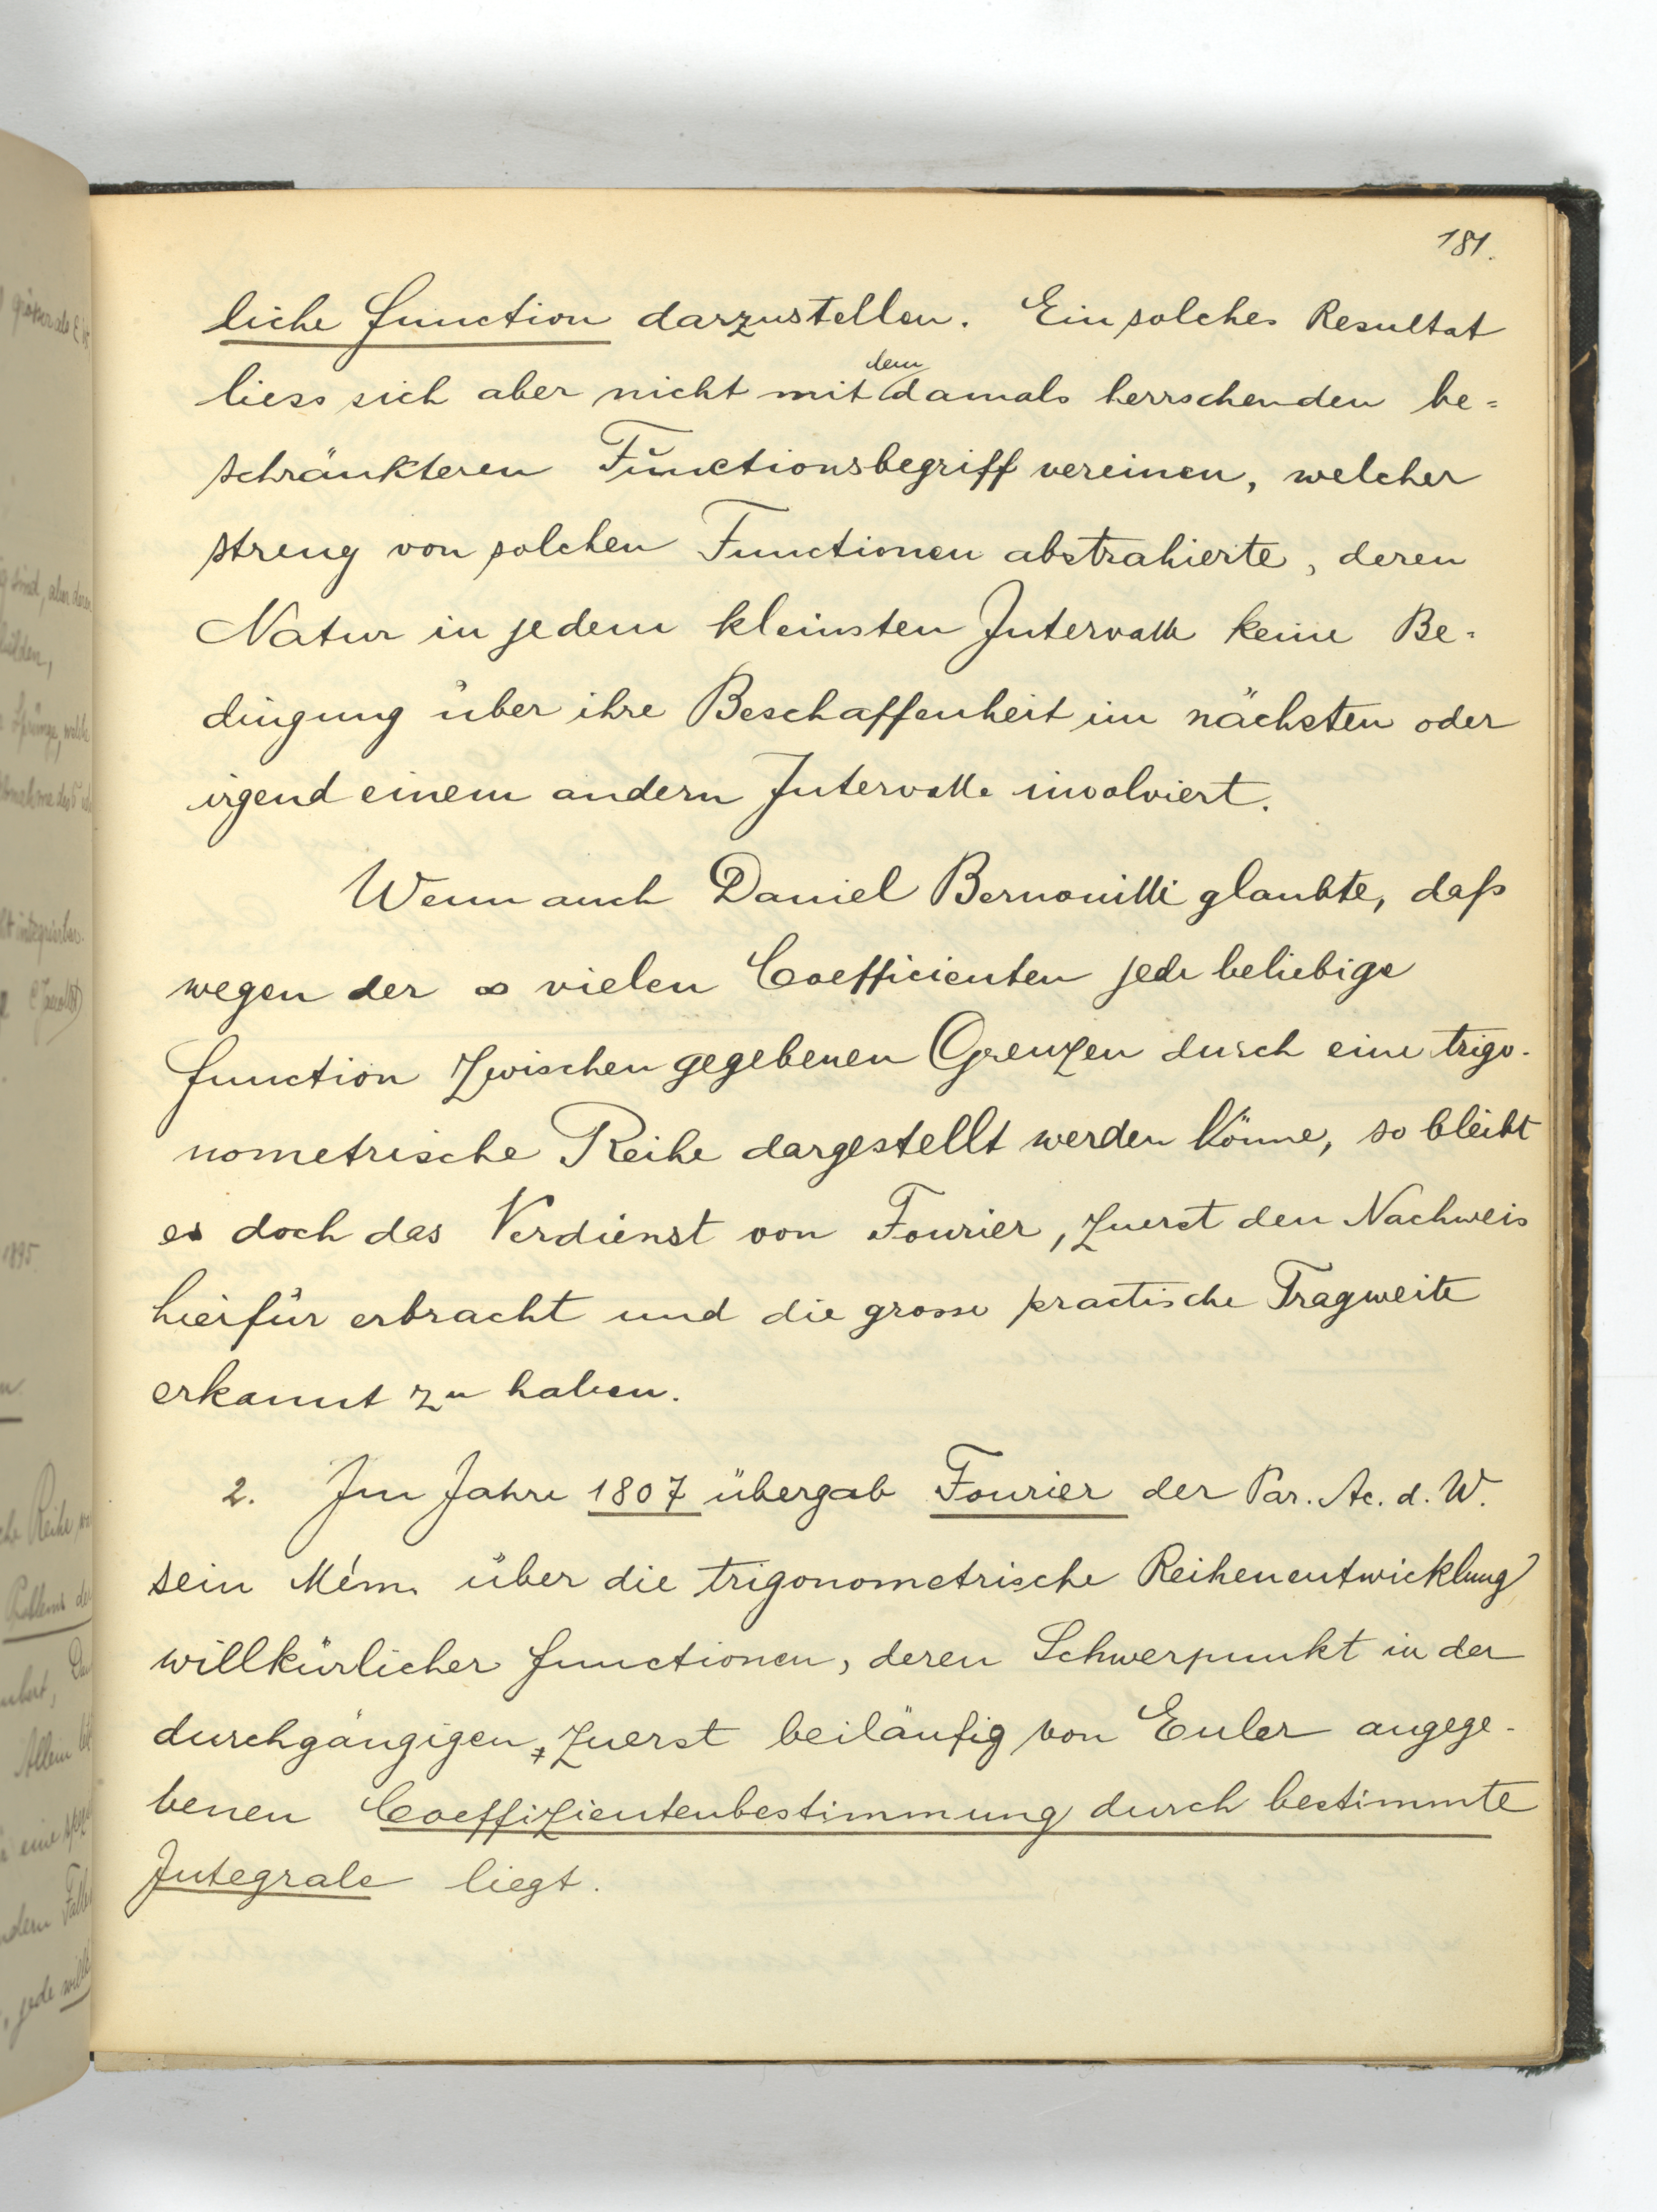 181.
liche function darzustellen. Ein solches Resultat
liess sich aber nicht mit dem damals herrschenden be=
schränkteren Functionsbegriff vereinen, welcher
streng von solchen Functionen abstrahierte, deren
Natur in jedem kleinsten Intervalle keine Be=
dingung über ihre Beschaffenheit im nächsten oder
irgend einem andern Intervalle involviert.
Wenn auch Daniel Bernouilli glaubte, daß
wegen der ∞ vielen Coefficienten jede beliebige
function zwischen gegebenen Grenzen durch eine trigo-
nometrische Reihe dargestellt werden könne, so bleibt
es doch das Verdienst von Fourier, zuerst den Nachweis
hierfür erbracht und die grosse practische Tragweite
erkannt zu haben.
2. Im Jahre 1807 übergab Fourier der Par. Ac. d. W.
sein Mém. über die trigonometrische Reihenentwicklung
willkürlicher functionen, deren Schwerpunkt in der
durchgängigen, zuerst beiläufig von Euler angege-
benen Coeffizientenbestimmung durch bestimmte
Integrale liegt.
1895.